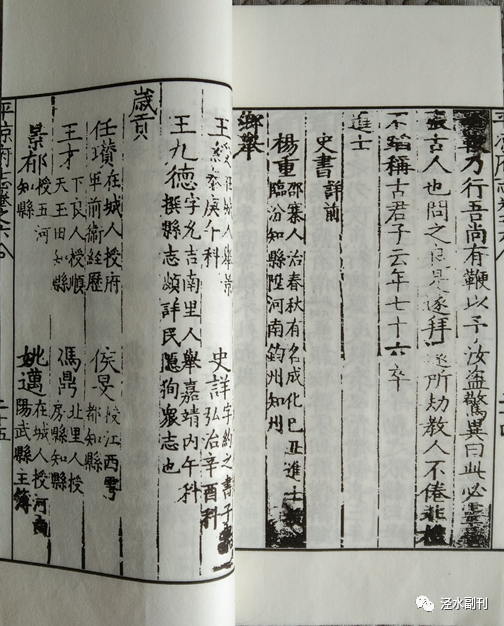 乃行吾尚有鞭以予汝盗驚異曰此必靈
張古人也問之良是遂拜還所劫教人不倦非禮
不蹈稱古君子云年七十六卒
進士
史書詳前
楊重邵寨人治春秋有名成化己丑進士
臨汾知縣陞河南鈞州知州
鄉舉
王 城人舉景
泰庚午科
史詳字約之書子
弘治辛酉科
王九德字允吉南里人舉嘉靖内午科
撰縣志頗詳民隱狥衆志也
歲貢
任瓚在城人授府
軍前衛經歷
侯旻授江西雩
都知縣
王才下良人授順
天玉田知縣
馮鼎北里人授
房縣知縣
景郁授玉河
知縣
姚邁在城人授河南
陽武縣主簿
平凉府志卷之六
二十五
泾水副刊